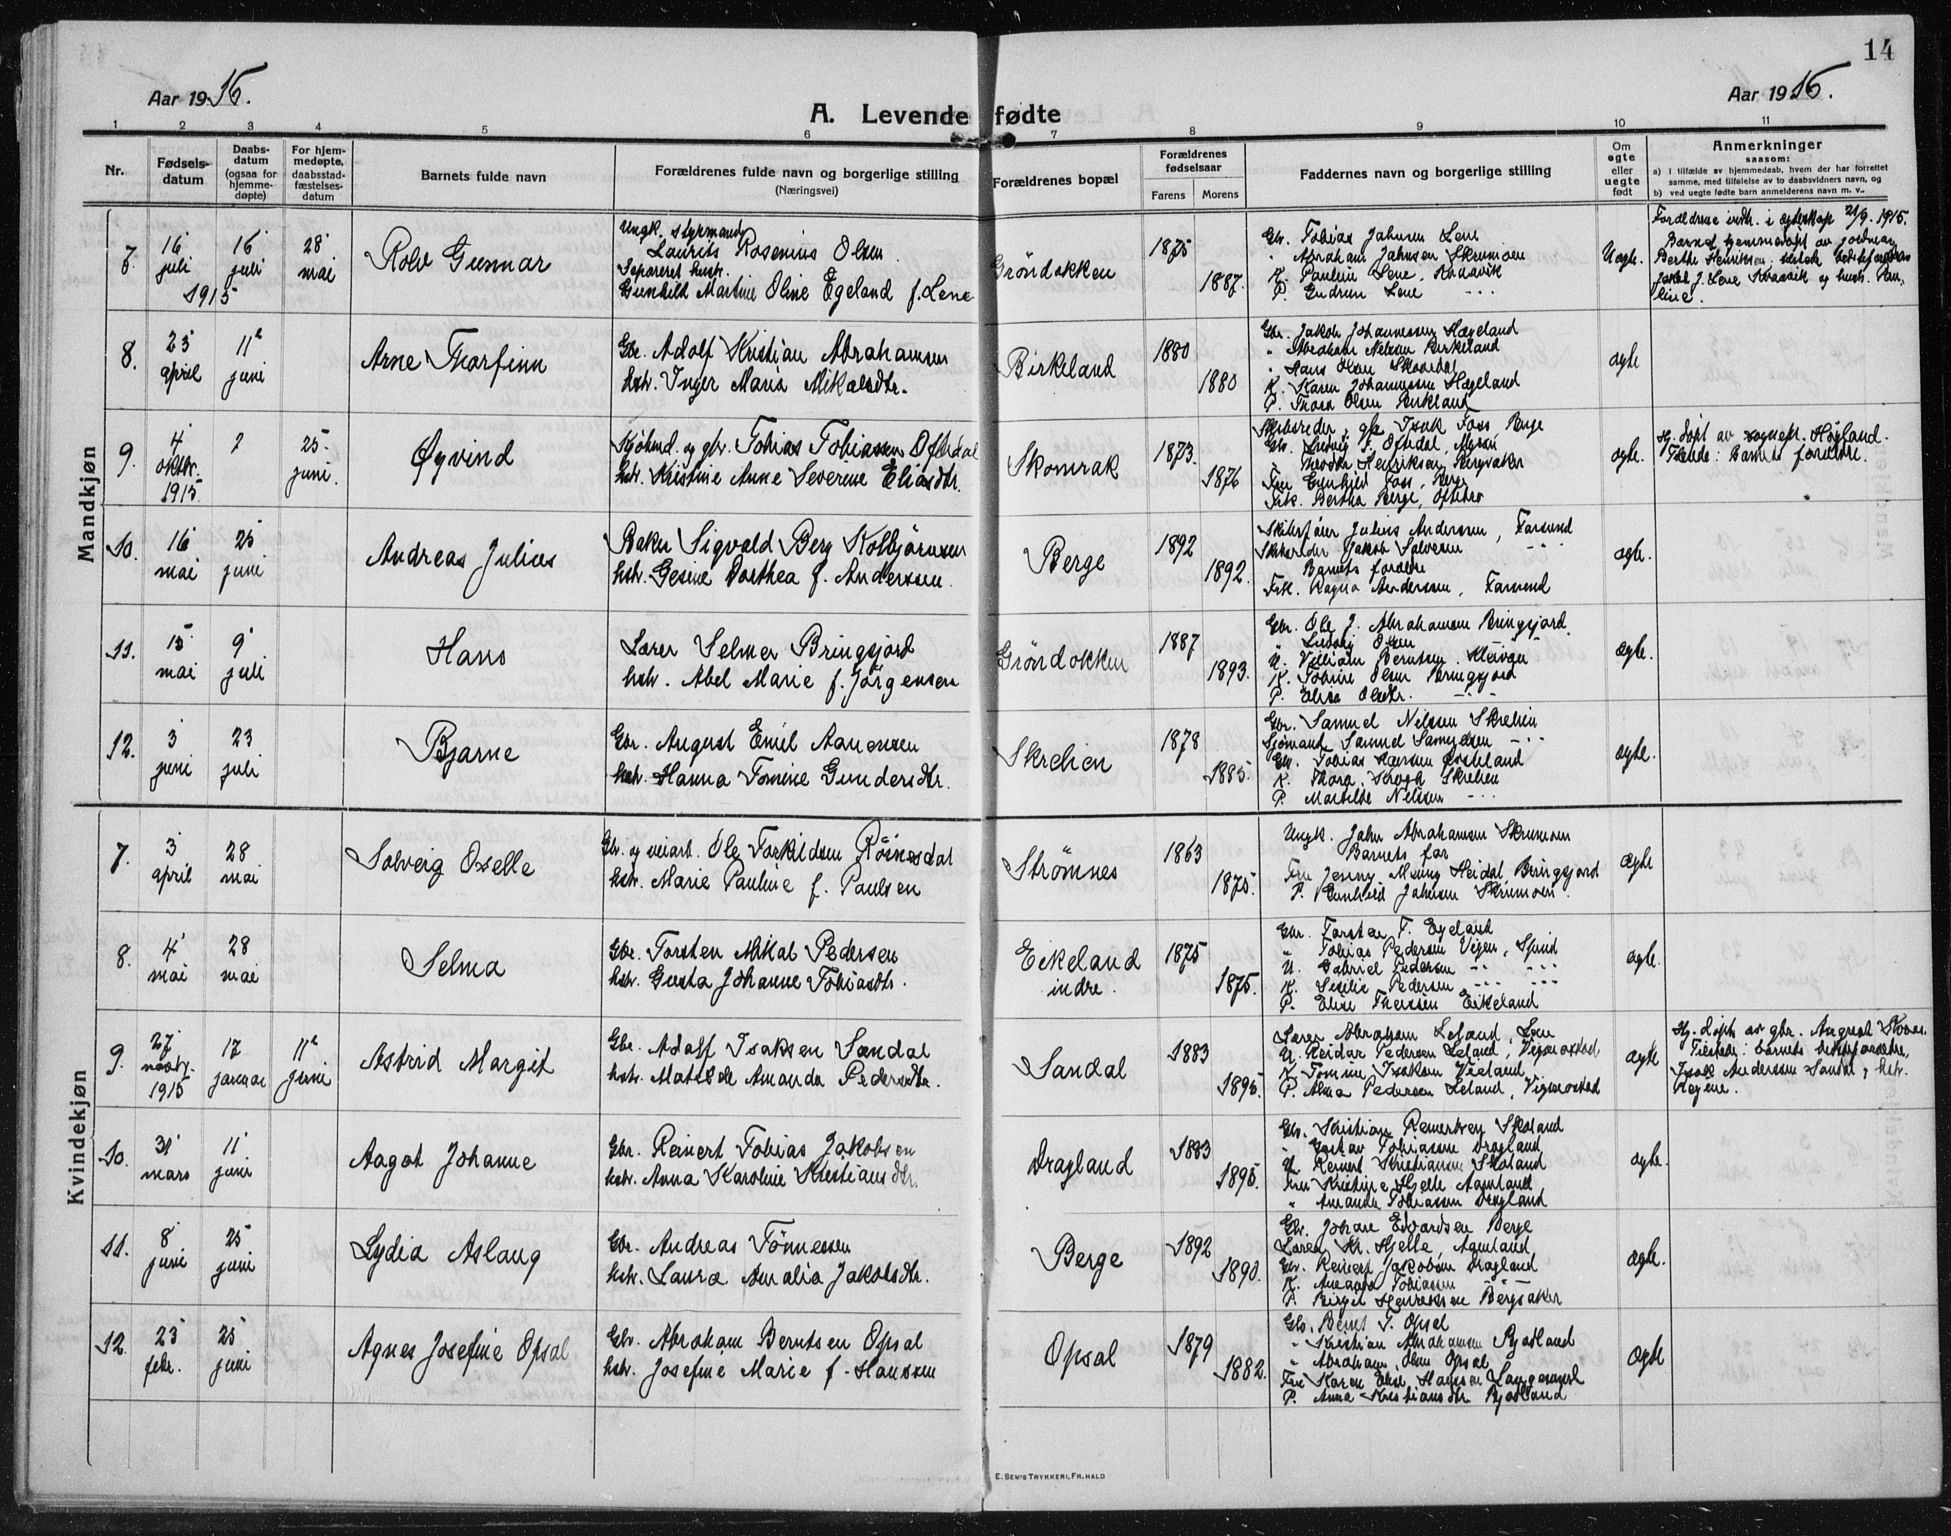 14
Aar 1916.
A. Levende fødte
Aar 1916.
1 2 3 4 5 6 7 8 9 10 11
Nr.
Fødsels-
datum
Daabs-
datum
(ogsaa for
hjemme-
døpte)
For hjem-
medøpte,
daabsstad-
fæstelses-
datum
Barnets fulde navn
Forældrenes fulde navn og borgerlige stilling
(Næringsvei)
Forældrenes bopæl
Forældrenes
fødselsaar
Farens Morens
Faddernes navn og borgerlige stilling
Om
egte
eller
uegte
født
Anmerkninger
saasom:
a) i tilfælde av hjemmedaab, hvem der har forrettet
samme, med tilføielse av to daabsvidners navn, og
b) ved uegte fødte barn anmelderens navn m. v..
Mandkjøn
7. 16 juli 1915 16 juli 28 mai
Rolv Gunnar
Ungk. styrmand
Laurits Rosenius Olsen
Separeret hustr.
Gunhild Martine Oline Egeland f. Lene
Grøndokken
1875
1887.
Gbr. Tobias Jahnsen Lene
" Abraham Jahnsen Skrumoen
K. Pauline Lene, Kvaavik
P. Gudrun Lene - - -
Uegte.
Forældrene indtr. i egteskap 21/9. 1915.
Barnet hjemmedøpt av jordmor
Berthe Henriksen.
J. Lene Kvaavik og hustr. Pau-
line.
8. 23 april 11 juni
Arne Torfinn
Gbr. Adolf Kristian Abrahamsen
hstr. Inger Maria Mikalsdtr.
Birkeland
1880
1880
Gbr. Jakob Johannessen Hægeland
" Abraham Nelsen Birkeland
" Hans
K. Karen Johannessen Hægeland
P. Thora Olsen Birkeland
egte
9. 4 oktbr. 1915 2 25 juni.
Øyvind
Kjøbmd. og gbr. Tobias Tobiassen Oftedal
hstr. Kristine Anne Severine Eliasdtr.
Skomrak
1873.
1876
Skibsreder, gbr Isak Foss Berge
Gbr. Ludvig T. Oftedal,
Henriksen Bergsaker
Fru Gunhild Foss, Berge
Frk. Bertha Berge, Oftebro
egte.
Hj. døpt av sognepr. Høyland.
Tilstede: Barnets forældre.
10. 16 mai 25 juni
Andreas Julius
Baker Sigvald Berg Kolbjørnsen
hstr. Gesine Dorthea f. Anderssen.
Berge
1892
1892.
Skibsfører Julius Anderssen, Farsund
Skibsreder Jakob Salvesen - - -
Barnets forældre
Frk. Ragna Anderssen, Farsund
egte.
11. 15 mai 9 juli
Hans
Lærer Selmer Bringsjord
hstr. Abel Marie f. Jørgensen
Grøndokken
1887
1893.
Gbr. Ole J. Abrahamsen Bringsjord.
" Ludvig Olsen - - -
U. Villiam Berntsen. Kleivan
K. Tobine Olsen Bringsjord
P. Elisa Olsdtr. - - -
egte.
12. 3 juni 23 juli
Bjarne
Gbr. August Emil Aanensen
hstr. Hanna Tomine Gundersdtr.
Skrelien
1878
1885.
Gbr. Samuel Nelssen Skrelien
Sjømand Samuel Samuelsen - - -
Gbr. Tobias Larsen
K. Thora Skrelien
P. Mathilde Nelssen - - -
egte.
Kvindekjøn
7. 3 april 28 mai
Solveig Oselle
Gbr. og veiarb. Ole Torkildsen Röinesdal
hstr. Marie Pauline f. Paulsen
Strømnes
1863
1875.
Ungk. Jahn Abrahamsen Skrumoen
Barnets far
Fru Jenny Heidal Bringsjord
P. Gunhild Jahnsen Skrumoen.
egte
8. 4 mai 28 mai
Selma
Gbr. Torsten Mikal Pedersen
hstr. Gusta Johanne Tobiasdtr.
Eikeland
indre.
1875
1875.
Gbr. Torsten T. Egeland
" Tobias Pedersen Vigen, Spind
U. Gabriel Pedersen - - - -
K. Sesilie Pedersen - - - -
P. Elise Thorssen Eikeland
egte.
9. 27 novbr. 1915 17 januar 11 juni
Astrid Margit
Gbr. Adolf Isaksen Sandal
hstr. Matilde Amanda Pedersdtr.
Sandal
1883
1895.
Lærer Abraham Leland, Lene
U. Reidar Pedersen Leland, Vigmostad
K. Tomine Isaksen Vieland
P. Alma Pedersen Leland, Vigmostad
egte
Hj. døpt av gbr. August
Tilstede: barnets bedsteforældre,
Isak Anderssen Sandal, hstr.
Regine.
10. 31 mars 11 juni
Aagot Johanne
Gbr. Reinert Tobias Jakobsen
hstr. Anna Karoline Kristiansdtr.
Dragland
1883
1895.
Gbr. Kristian Reinertsen Skoland
" Gustav Tobiassen Dragland
U. Reinert Kristiansen Skoland
Fru Kristine Hjelle Aamland
" Amanda Tobiassen Dragland
egte.
11. 8 juni 25 juni
Lydia Aslaug
Gbr. Andreas Tönnessen
hstr. Laura Amalia Jakobsdtr.
Berge
1892
1890.
Gbr. Johan Edvardsen Berge
Lærer Kr. Hjelle, Aamland
Gbr. Reinert Jakobsen Dragland
K. Amanda Tobiassen - - -
P. Birgit Henriksen Bergsaker
egte.
12. 23 febr. 25 juni
Agnes Josefine Opsal
Gbr. Abraham Berntsen Opsal
hstr. Josefine Marie f. Hanssen
Opsal
1879
1882.
Gbr. Bernt T. Opsal
" Kristian Abrahamsen Rjosland
" Abraham Olsen Opsal
Fru Karen Elise Hanssen
P. Anna Kristiansdtr. Rjosland
egte
E. SEM'S TRYKKERI, FR. HALD